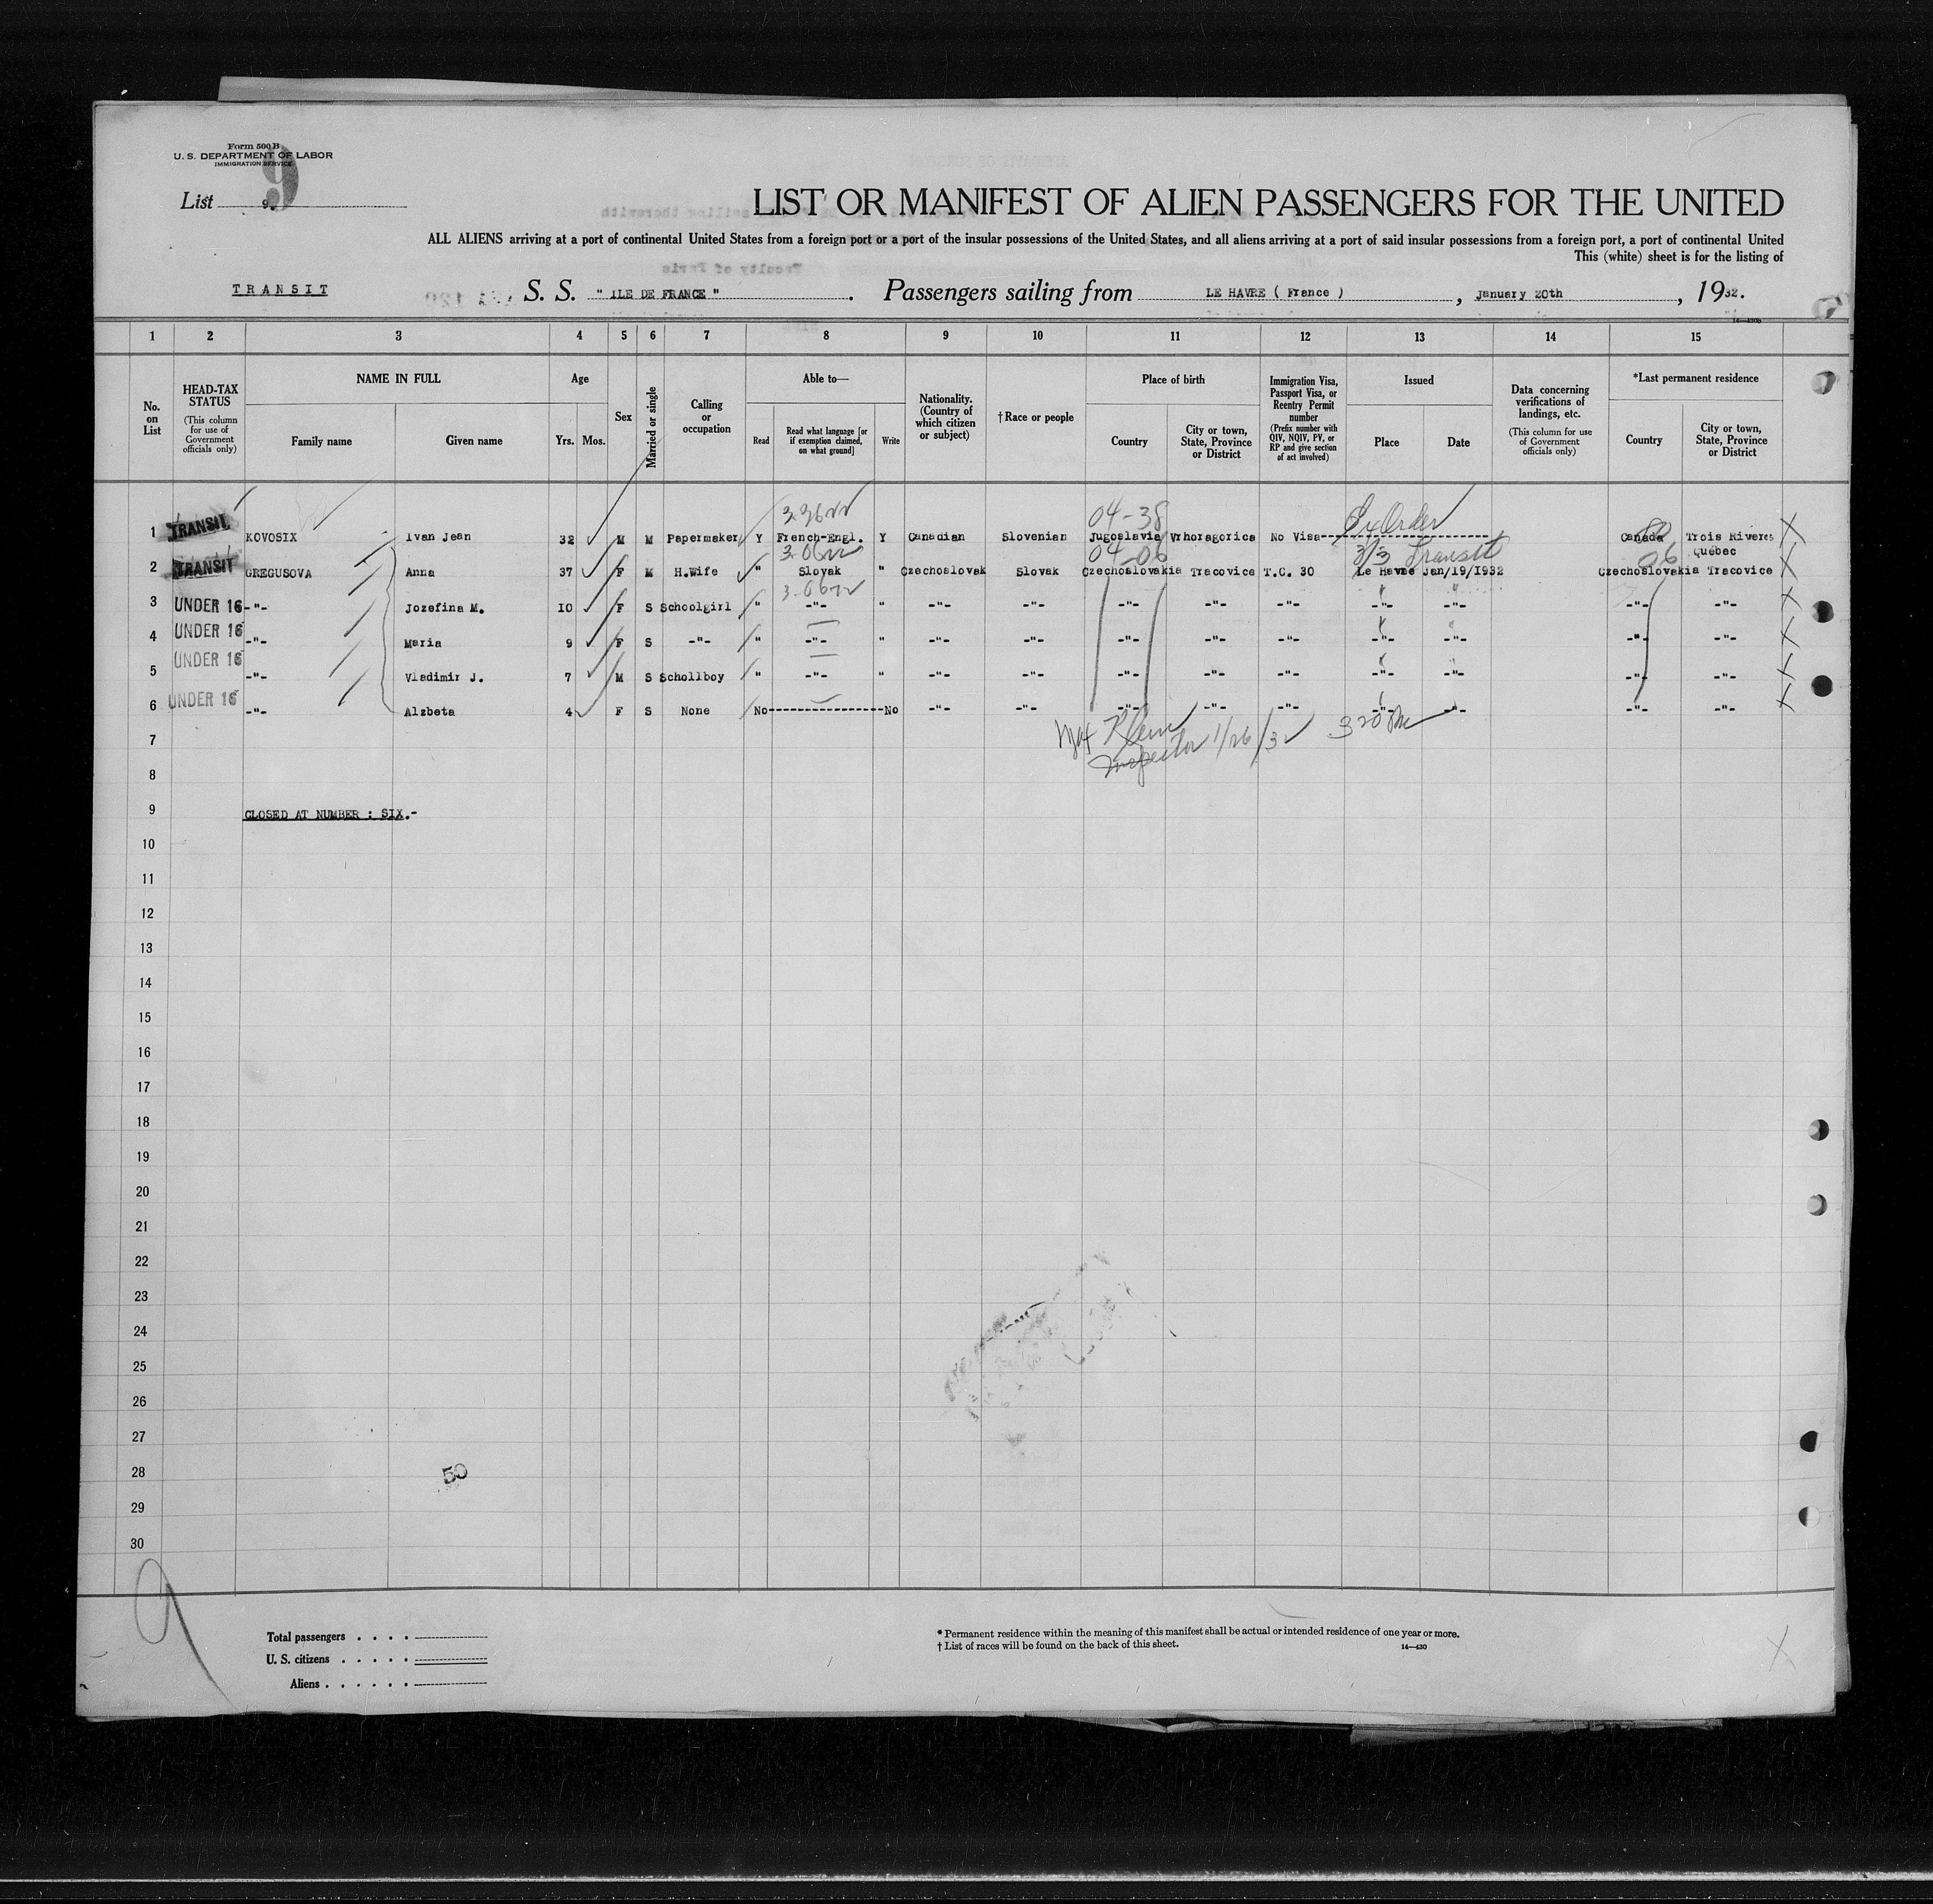 Form 500 B
U. S. DEPARTMENT OF LABOR
IMMIGRATION SERVICE
9
List 9.
LIST OR MANIFEST OF ALIEN PASSENGERS FOR THE UNITED
ALL ALIENS arriving at a port of continental United States from a foreign port or a port of the insular possessions of the United States, and all aliens arriving at a port of said insular possessions from a foreign port, a port of continental United
This (white) sheet is for the listing of
TRANSIT S. S. " ILE DE FRANCE " . Passengers sailing from LE HAVRE ( France ) , January 20th , 1932.
1 2 3 4 5 6 7 8 9 10 11 12 13 14 15
No. on List
HEAD-TAX STATUS (This column for use of Government officials only)
NAME IN FULL
Family name Given name
Age
Yrs. Mos.
Sex
Married or single
Calling or occupation
Able to—
Read
Read what language [or if exemption claimed, on what ground]
Write
Nationality. (Country of which citizen or subject)
†Race or people
Place of birth
Country
City or town, State, Province or District
Immigration Visa, Passport Visa, or Reentry Permit number (Prefix number with QIV, NQIV, PV, or RP and give section of act involved)
Issued
Place Date
Data concerning verifications of landings, etc. (This column for use of Government officials only)
*Last permanent residence
Country
City or town, State, Province or District
04-38 Ex Order
1 TRANSIT KOVOSIX Ivan Jean 32 M M Papermaker Y French-Engl. Y Canadian Slovenian Jugoslavia Vrhoragorica No Visa Canada Trois Riveres Québec
04-06 3/3 Transit 06
2 TRANSIT GREGUSOVA Anna 37 F M H.Wife " Slovak " Czechoslovak Slovak Czechoslovakia Tracovice T.C. 30 Le Havre Jan/19/1932 Czechoslovakia Tracovice
3 UNDER 16 -"- Jozefina M. 10 F S Schoolgirl " -"- " -"- -"- -"- -"- -"- -"- -"- -"- -"-
4 UNDER 16 -"- Maria 9 F S -"- " -"- " -"- -"- -"- -"- -"- -"- -"- -"- -"-
5 UNDER 16 -"- Vladimir J. 7 M S Schollboy " -"- " -"- -"- -"- -"- -"- -"- -"- -"- -"-
6 UNDER 16 -"- Alzbeta 4 F S None No No -"- -"- -"- -"- -"- -"- -"- -"- -"-
7 Klein 320 PM
Inspector 1/26/32
8
9 CLOSED AT NUMBER : SIX.-
10
11
12
13
14
15
16
17
18
19
20
21
22
23
24
25
26
27
28 50
29
30
9
Total passengers . . . .
U. S. citizens . . . . .
Aliens . . . . . .
* Permanent residence within the meaning of this manifest shall be actual or intended residence of one year or more.
† List of races will be found on the back of this sheet.
14—430